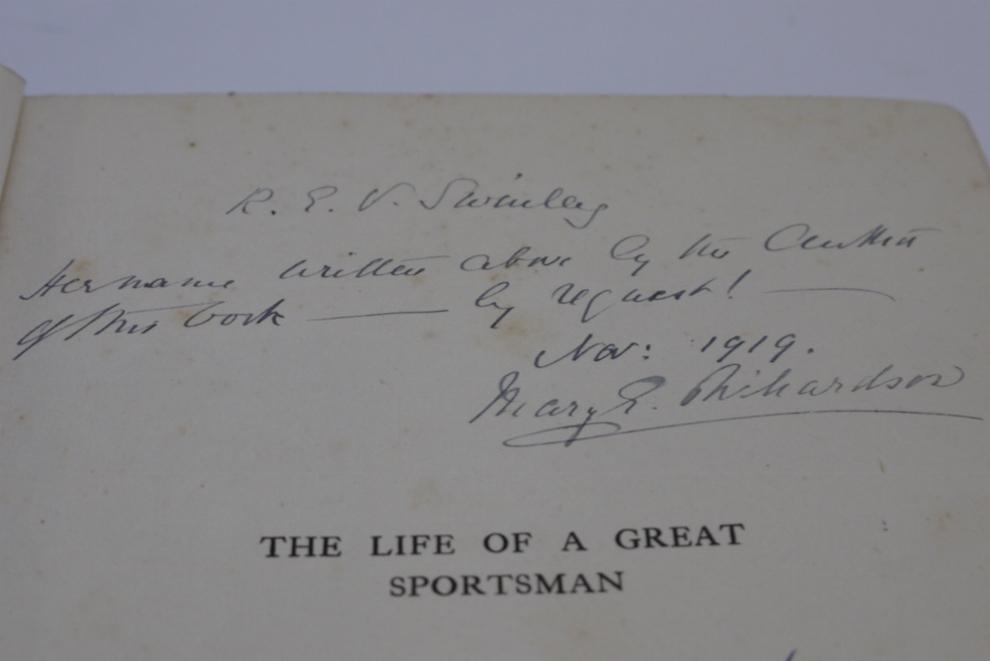 R. E. V. Swinley
Her name written above by the Author
of this book — by request! —
Nov: 1919.
Mary E. Richardson
THE LIFE OF A GREAT
SPORTSMAN